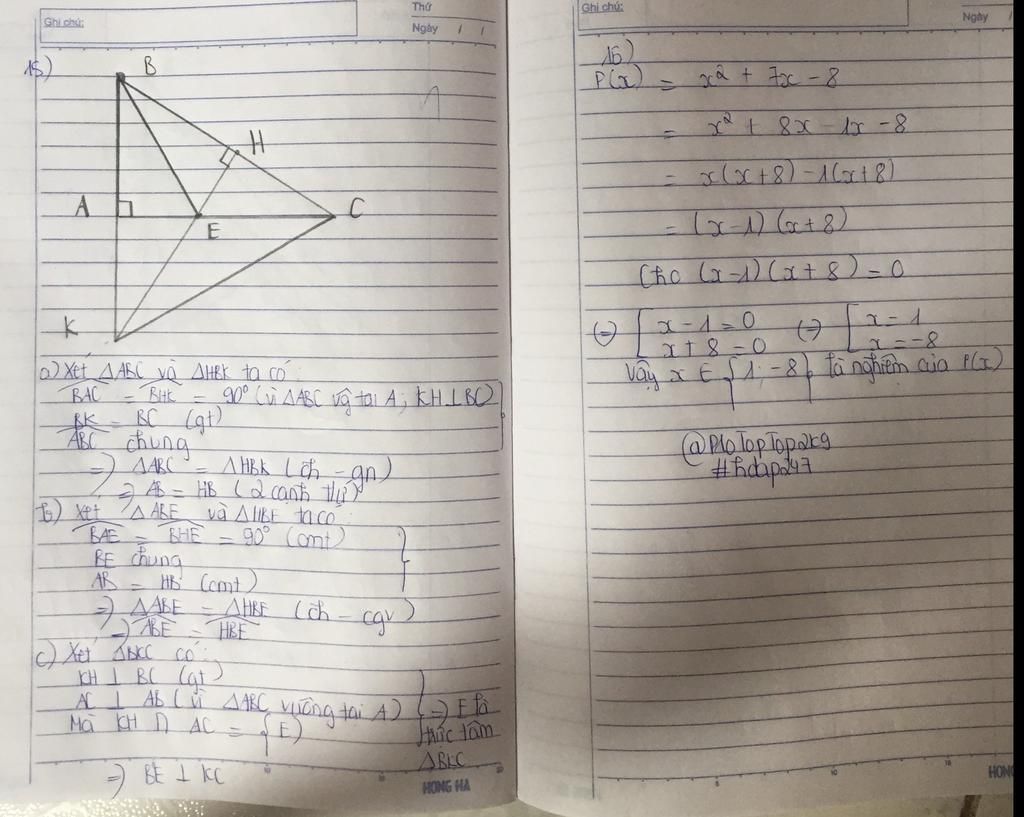 Ghi chú:
Thứ
Ngày / /
15)
B
H
A
E
C
K
a) Xét △ABC và △HBK ta có:
BAC = BHK = 90° (vì △ABC vg tại A; KH⊥BC)
BK = BC (gt)
ABC chung
=> △ABC = △HBK (ch - gn)
=> AB = HB (2 cạnh tư)
b) Xét △ABE và △HBE ta có:
BAE = BHE = 90° (cmt)
BE chung
AB = HB (cmt)
=> △ABE = △HBE (ch - cgv)
=> ABE = HBE
c) Xét △BKC có:
KH ⊥ BC (gt)
AC ⊥ AB (vì △ABC vuông tại A) => E là
Mà KH ∩ AC = {E}
trực tâm
△BKC
=> BE ⊥ KC
HONG HA
Ghi chú:
Ngày /
16)
P(x) = x² + 7x - 8
= x² + 8x - 1x - 8
= x(x+8) - 1(x+8)
= (x-1)(x+8)
Cho (x-1)(x+8) = 0
(=) [x - 1 = 0 (=) [x = 1
x + 8 = 0 x = -8
Vậy x ∈ {1; -8} là nghiệm của P(x)
@PloTopTop2k9
#hdap247
HONG